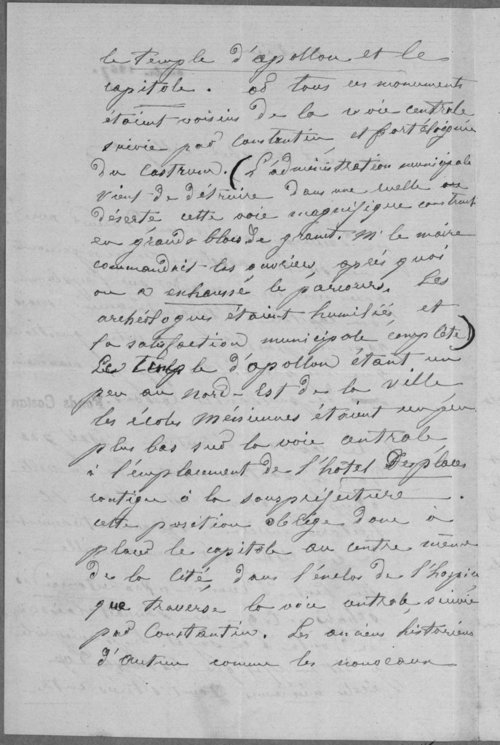 le temple d'apollon et le
capitole. or tous ces monuments
étaient voisins de la voie centrale
suivie par Constantin et fort éloignée
du Castrum. (L'administration municipale
vient de détruire dans une ruelle
déserte cette voie magnifique construite
en grands blocs de granit. Mr le maire
commandait les ouvriers, après quoi
on a exhaussé le parcours. Les
archéologues étaient humiliés et
la satisfaction municipale complète)
Le Temple d'apollon étant un
peu au nord-Est de la ville
les écoles Méniennes étaient un peu
plus bas sur la voie centrale
à l'emplacement de l'hôtel Desplaces
contigu à la souspréfecture.
cette position oblige donc à
placer le capitole au centre même
de la Cité, dans l'enclos de l'hospice
que traverse la voie centrale suivie
par Constantin. Les anciens historiens
d'autun comme les nouveaux